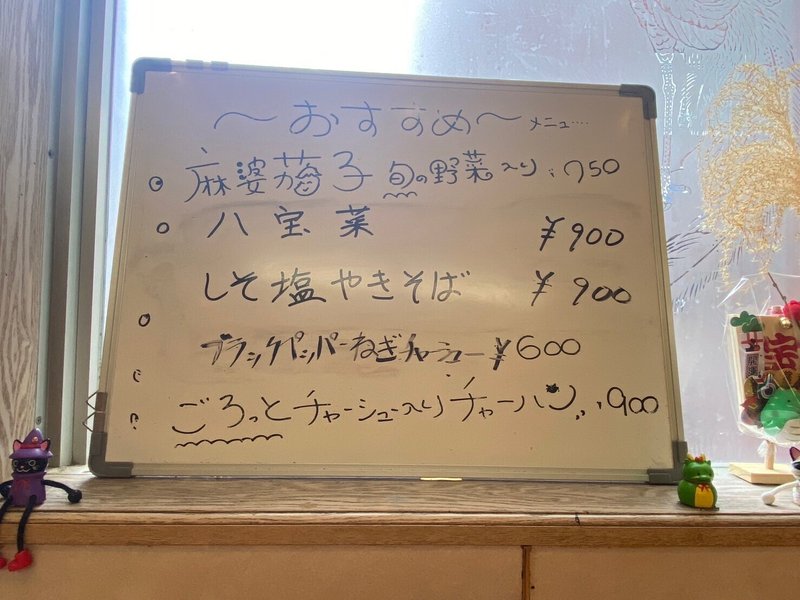 ～おすすめ～メニュー....
麻婆茄子 旬の野菜入り:950
八宝菜 ¥900
しそ塩やきそば ¥900
ブラックペッパーねぎチャーシュー ¥600
ごろっとチャーシュー入りチャーハン:900